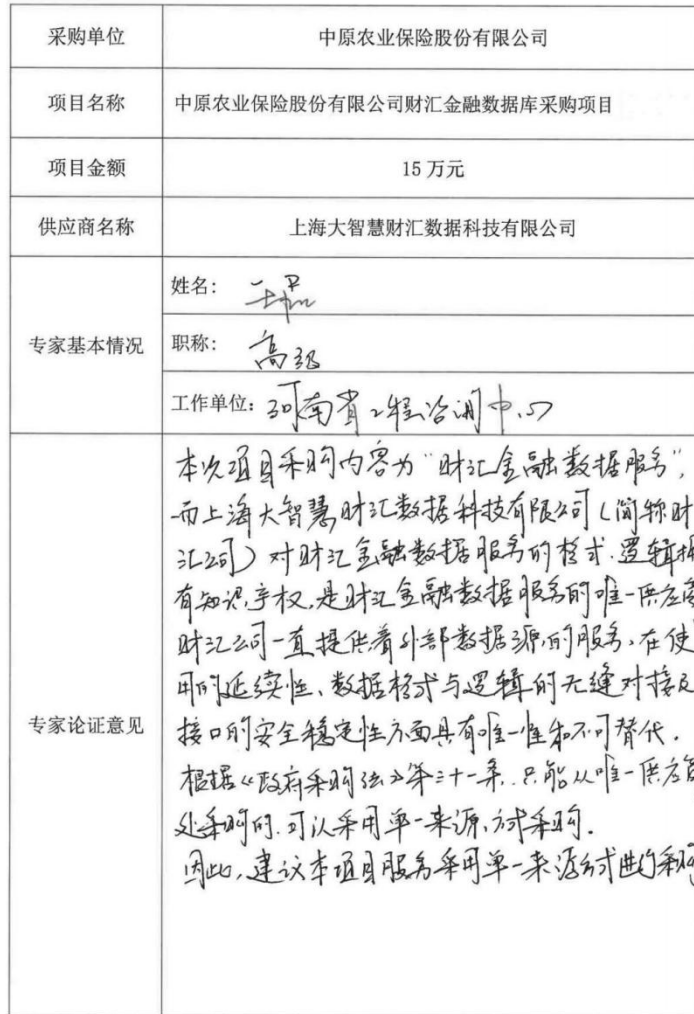 采购单位 中原农业保险股份有限公司
项目名称 中原农业保险股份有限公司财汇金融数据库采购项目
项目金额 15 万元
供应商名称 上海大智慧财汇数据科技有限公司
专家基本情况
姓名：
职称： 高级
工作单位： 河南省工程咨询中心
专家论证意见
本次项目采购内容为“财汇金融数据服务”，
而上海大智慧财汇数据科技有限公司（简称财
汇公司）对财汇金融数据服务的格式、逻辑拥
有知识产权，是财汇金融数据服务的唯一供应商
财汇公司一直提供着外部数据源的服务，在使
用的延续性、数据格式与逻辑的无缝对接及
接口的安全稳定性方面具有唯一性和不可替代。
根据《政府采购法》第三十一条，只能从唯一供应商
处采购的，可以采用单一来源方式采购。
因此，建议本项目服务采用单一来源方式进行采购